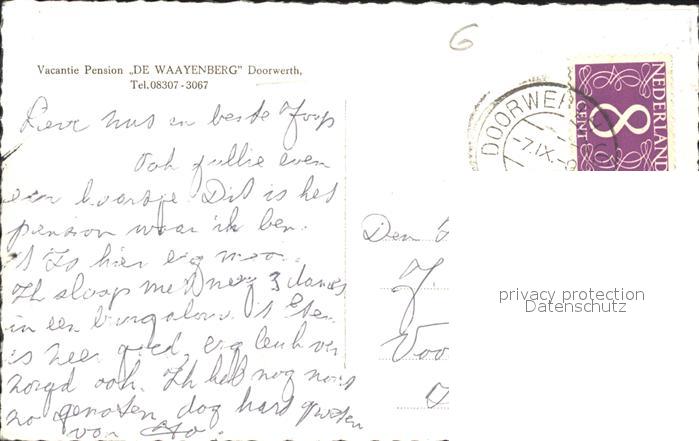 6
Vacantie Pension „DE WAAYENBERG" Doorwerth,
Tel. 08307 - 3067
NEDERLAND
8 CENT
DOORWER
-7.IX.-
Lieve Nus en beste Joop
Ook jullie even
een kaartje. Dit is het
pension waar ik ben.
't Is hier erg mooi.
Ik slaap met nog 3 dames
in een bungalow. 't Eten
is zeer goed, erg leuk ver
zorgd ook. Ik heb nog nooit
zo genoten, dag hart groeten
van
Den
J.
Voo
privacy protection
Datenschutz